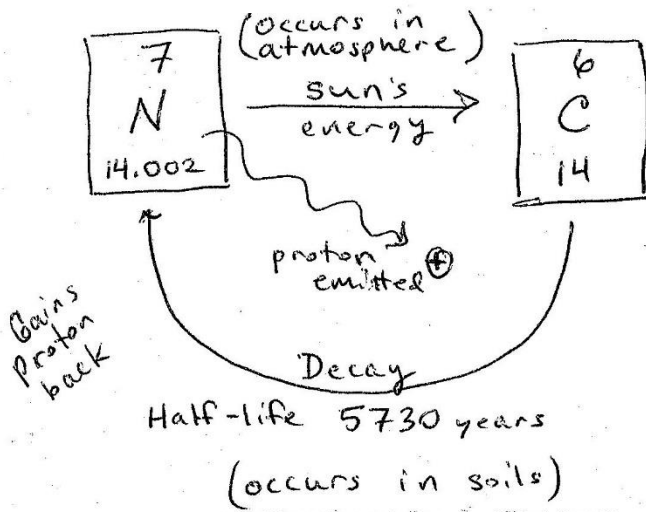 7
N
14.002
(occurs in
atmosphere)
sun's
energy
6
C
14
proton
emitted +
Gains
Proton
back
Decay
Half-life 5730 years
(occurs in soils)